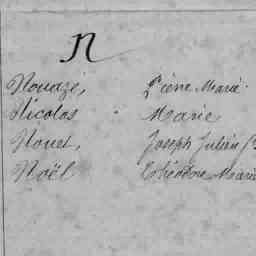 N
Nouazé, Pierre Marie
Nicolas Marie
Nouet, Joseph Julien
Noël Théodore Marie